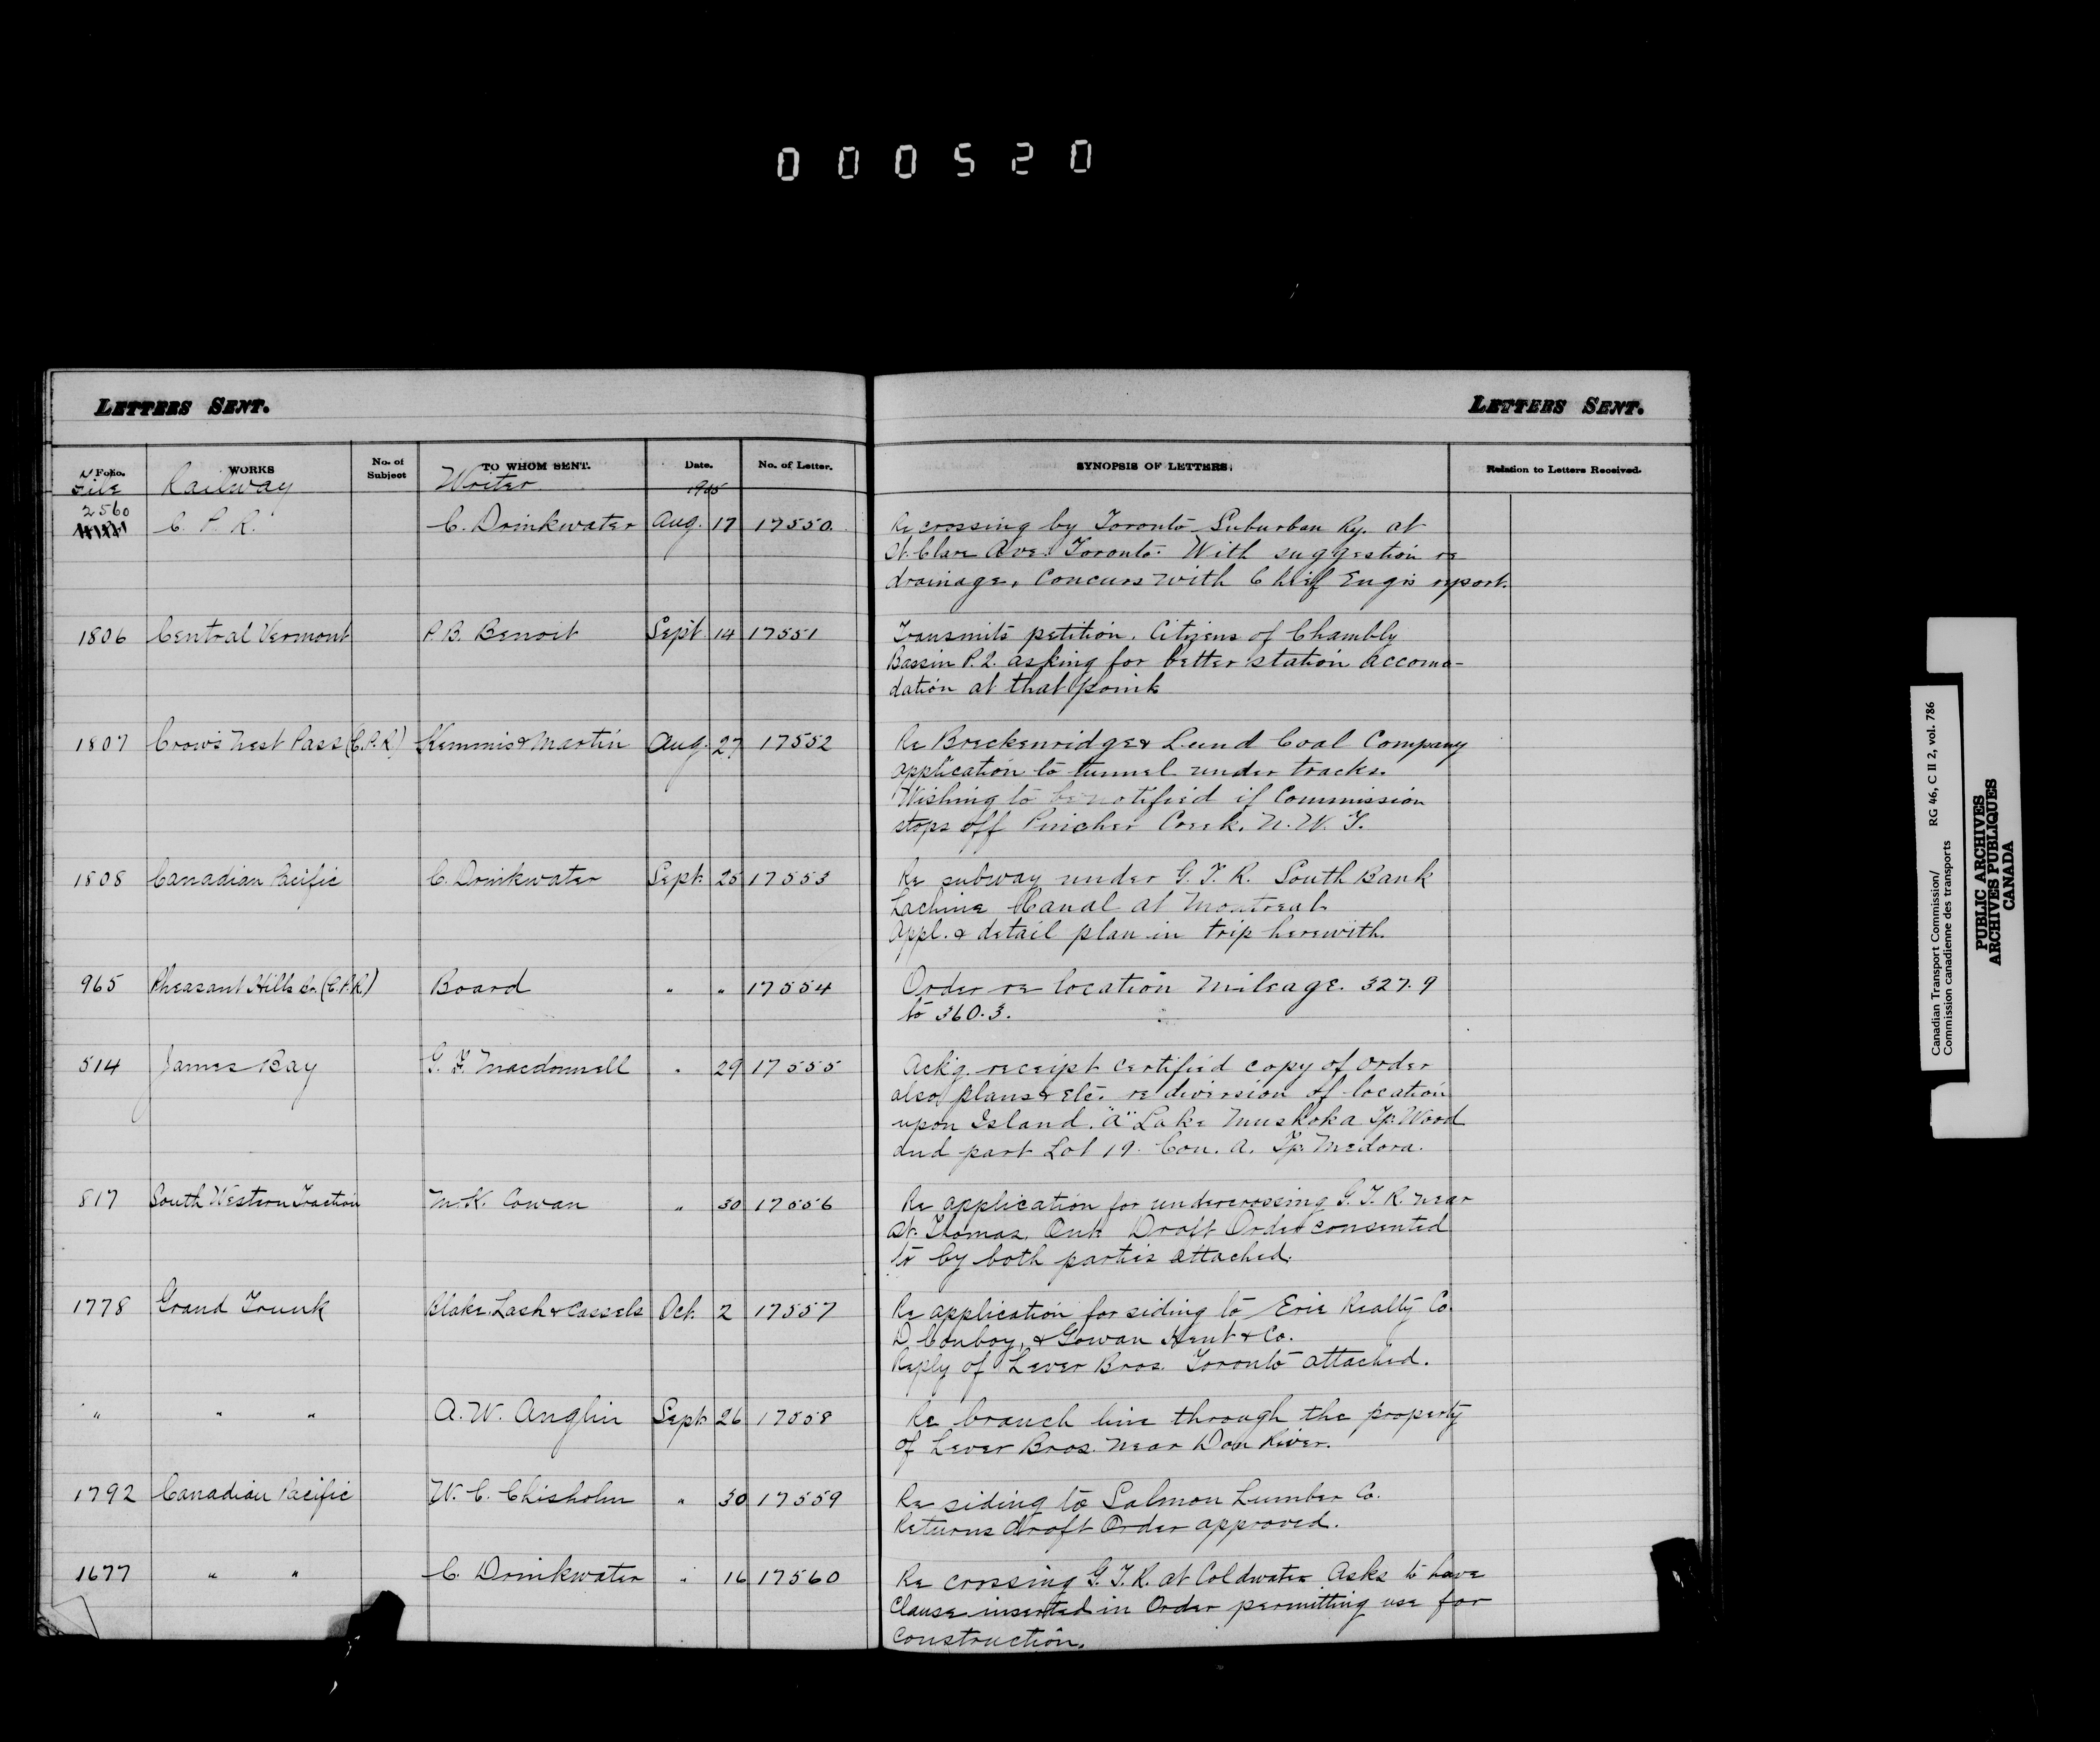 000520
LETTERS SENT.
LETTERS SENT.
Folio. WORKS No. of Subject TO WHOM SENT. Date. No. of Letter. SYNOPSIS OF LETTERS. Relation to Letters Received.
File Railway Writer 1905
2560
C. P. R. C. Drinkwater Aug. 17 17550 Re crossing by Toronto Suburban Ry. at
St. Clare Ave. Toronto. With suggestion re
drainage, concurs with Chief Engrs report.
1806 Central Vermont P. B. Benoit Sept 14 17551 Transmits petition. Citizens of Chambly
Bassin P.Q. asking for better station accomo-
dation at that point
1807 Crow's Nest Pass (C.P.R.) Kemmis & Martin Aug. 27 17552 Re Breckenridge & Lund Coal Company
application to tunnel under tracks.
Wishing to be notified if Commission
stops off Pincher Creek. N. W. T.
1808 Canadian Pacific C. Drinkwater Sept. 25 17553 Re subway under G. T. R. South Bank
Lachine Canal at Montreal.
Appl. & detail plan in trip herewith.
965 Pheasant Hills Br. (C.P.R.) Board " " 17554 Order re location mileage. 327.9
to 360.3.
514 James Bay G. F. Macdonnell " 29 17555 Ackg. receipt certified copy of order
also plans & etc. re diversion of location
upon Island "A" Lake Muskoka Tp. Wood
and part Lot 19. Con. A. Tp. Medora.
817 South Western Traction M. K. Cowan " 30 17556 Re application for undercrossing G. T. R. near
St. Thomas, Ont Draft Order consented
to by both parties attached.
1778 Grand Trunk Blake, Lash & Cassels Oct. 2 17557 Re application for siding to Erie Realty Co.
D Conboy, & Gowan Kent & Co.
Reply of Lever Bros. Toronto attached.
" " " A. W. Anglin Sept 26 17558 Re branch line through the property
of Lever Bros. near Don River.
1792 Canadian Pacific W. C. Chisholm " 30 17559 Re siding to Salmon Lumber Co.
Returns draft Order approved.
1677 " " C. Drinkwater " 16 17560 Re crossing G. T. R. at Coldwater Asks to have
clause inserted in Order permitting use for
construction.
Canadian Transport Commission/ RG 46, C II 2, vol. 786
Commission canadienne des transports
PUBLIC ARCHIVES
ARCHIVES PUBLIQUES
CANADA